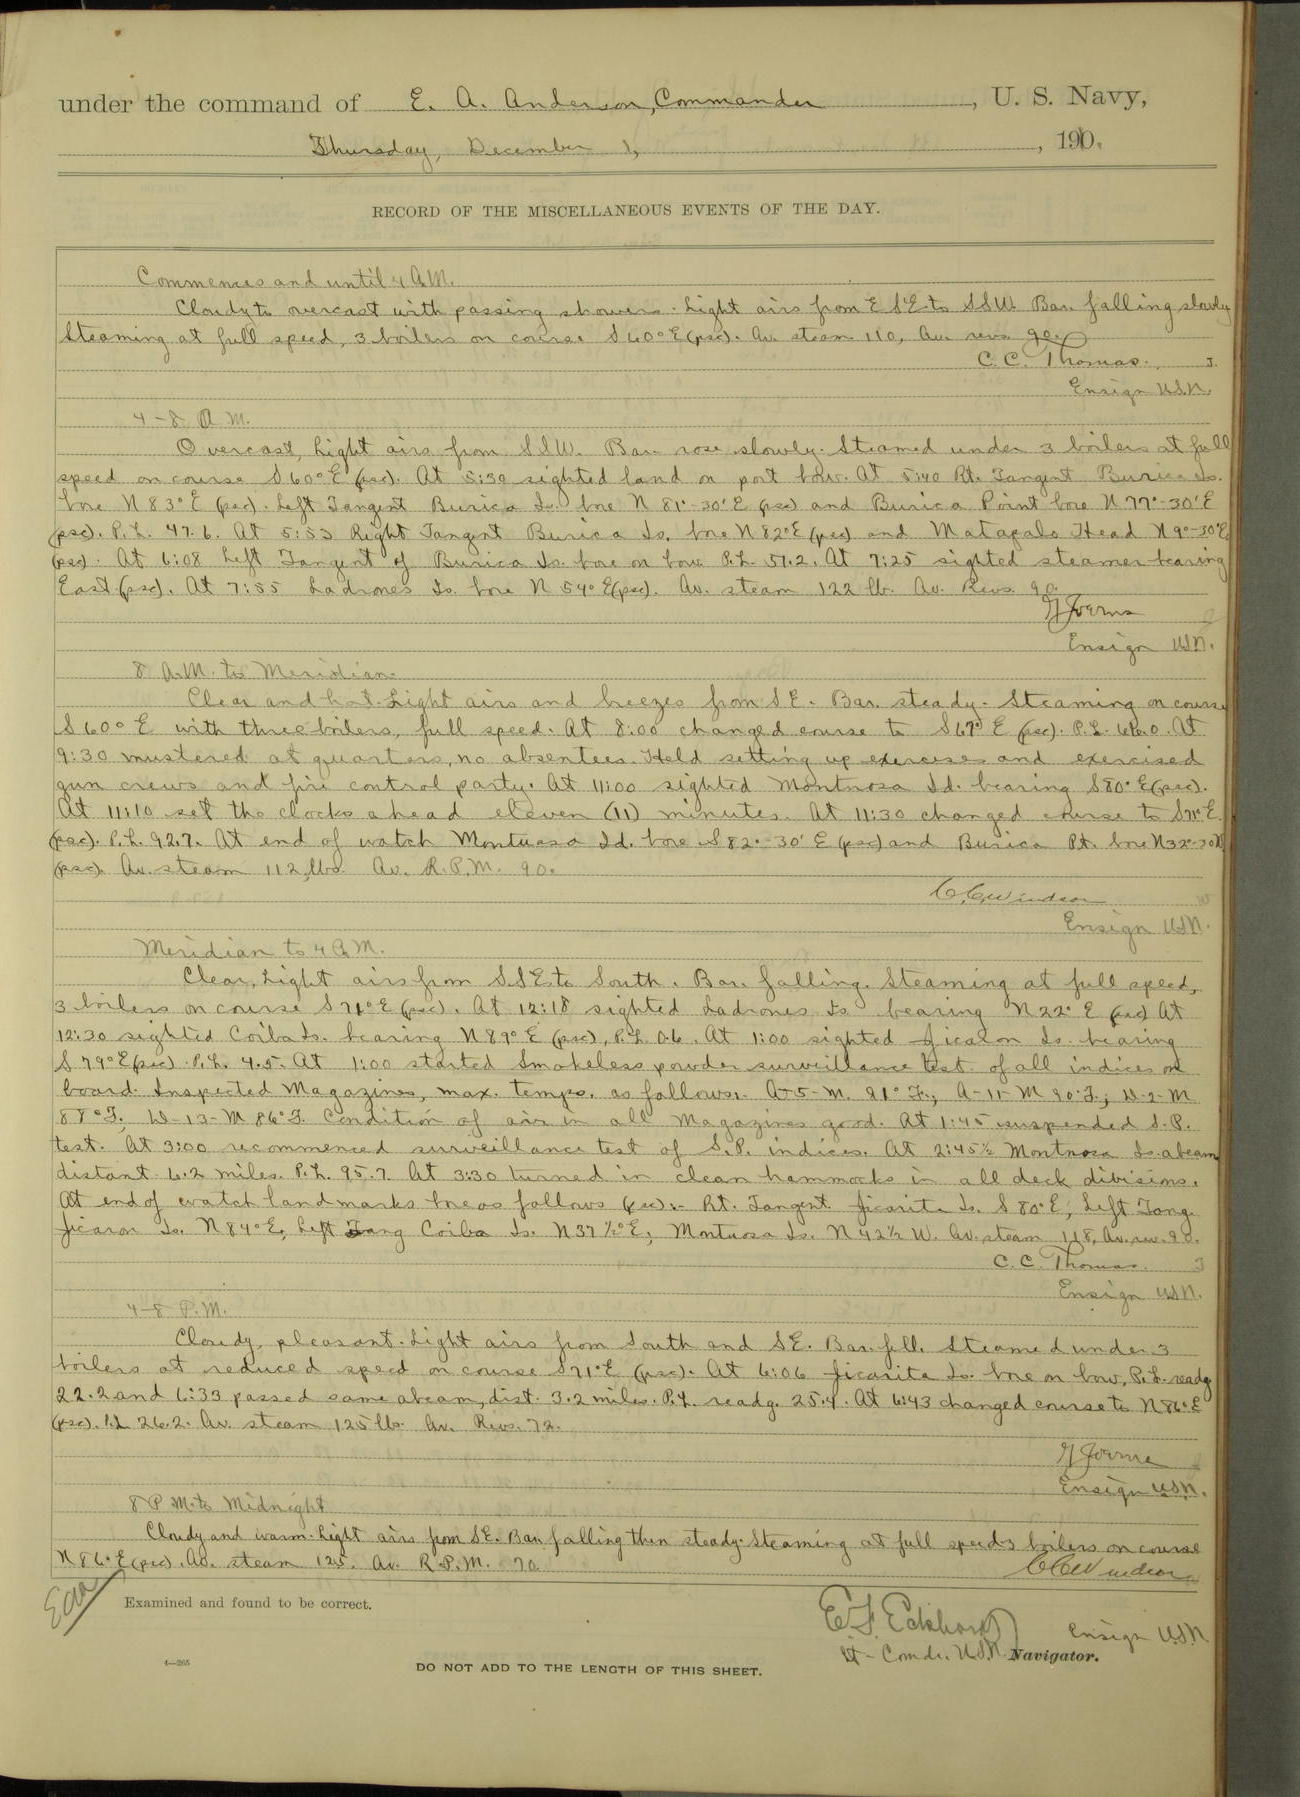 under the command of E. A. Anderson, Commander, U. S. Navy,
Thursday, December 1, 1910.
RECORD OF THE MISCELLANEOUS EVENTS OF THE DAY.
Commences and until 4 A.M.
Cloudy to overcast with passing showers. Light airs from ESE to SSW. Bar. falling slowly
Steaming at full speed, 3 boilers on course S 60° E (psc). Av. steam 110, Av. revs 90.
C. C. Thomas.
Ensign U.S.N.
4-8 A.M.
Overcast, light airs from SSW. Bar. rose slowly. Steamed under 3 boilers at full
speed on course S 60° E (psc). At 5:30 sighted land on port bow. At 5:40 Rt. Tangent Burica Is.
bore N 83° E (psc). Left Tangent Burica Is. bore N 81°-30' E (psc) and Burica Point bore N 77°-30' E
(psc). P.L. 47.6. At 5:53 Right Tangent Burica Is. bore N 82° E (psc) and Matapalo Head N 9°-30' E
(psc). At 6:08 Left Tangent of Burica Is. bore on bow P.L. 51.2. At 7:25 sighted steamer bearing
East (psc). At 7:55 Ladrones Is. bore N 54° E (psc). Av. steam 122 lb. Av. Revs. 90.
Ensign U.S.N.
8 A.M. to Meridian
Clear and hot. Light airs and breezes from SE. Bar. steady. Steaming on course
S 60° E with three boilers, full speed. At 8:00 changed course to S 67° E (psc). P.L. 66.0. At
9:30 mustered at quarters, no absentees. Held setting up exercises and exercised
gun crews and fire control party. At 11:00 sighted Montuosa Id. bearing S 80° E (psc).
At 11:10 set the clocks ahead eleven (11) minutes. At 11:30 changed course to S 71° E
(psc). P.L. 92.7. At end of watch Montuosa Id. bore S 82°-30' E (psc) and Burica Pt. bore N 32°-30 W
(psc). Av. steam 112 lbs. Av. R.P.M. 90.
C. C. Windsor
Ensign U.S.N.
Meridian to 4 P.M.
Clear, Light airs from SSE to South. Bar. falling. Steaming at full speed,
3 boilers on course S 71° E (psc). At 12:18 sighted Ladrones Is. bearing N 22° E (psc) At
12:30 sighted Coiba Is. bearing N 89° E (psc), P.L. 0.6. At 1:00 sighted Jicaron Is. bearing
S 79° E (psc). P.L. 4.5. At 1:00 started Smokeless powder surveillance test of all indices on
board. Inspected Magazines, max. temps. as follows:- A-5-M. 91° F., A-11-M 90° F., D-2-M
88° F., D-13-M 86° F. Condition of air in all Magazines good. At 1:45 suspended S.P.
test. At 3:00 recommenced surveillance test of S.P. indices. At 2:45½ Montuosa Is. abeam
distant 6.2 miles. P.L. 95.7. At 3:30 turned in clean hammocks in all deck divisions.
At end of watch landmarks bore as follows (psc):- Rt. Tangent Jicarita Is. S 80° E, Left Tang.
Jicaron Is. N 84° E, Left Tang Coiba Is. N 37½° E, Montuosa Is. N 42½ W. Av. steam 118, Av. rev. 90.
C. C. Thomas.
Ensign U.S.N.
4-8 P.M.
Cloudy, pleasant. Light airs from South and SE. Bar. fell. Steamed under 3
boilers at reduced speed on course S 71° E (psc). At 6:06 Jicarita Is. bore on bow, P.L. readg.
22.2 and 6:33 passed same abeam, dist. 3.2 miles. P.L. readg. 25.4. At 6:43 changed course to N 86° E
(psc). P.L. 26.2. Av. steam 125 lb. Av. Revs. 72.
Ensign U.S.N.
8 P.M. to Midnight
Cloudy and warm. Light airs from SE. Bar. falling then steady. Steaming at full speed 3 boilers on course
N 86° E (psc). Av. steam 125. Av. R.P.M. 70
C C Windsor
Examined and found to be correct.
Ensign U.S.N.
Lt-Comdr. U.S.N. Navigator.
4—265
DO NOT ADD TO THE LENGTH OF THIS SHEET.